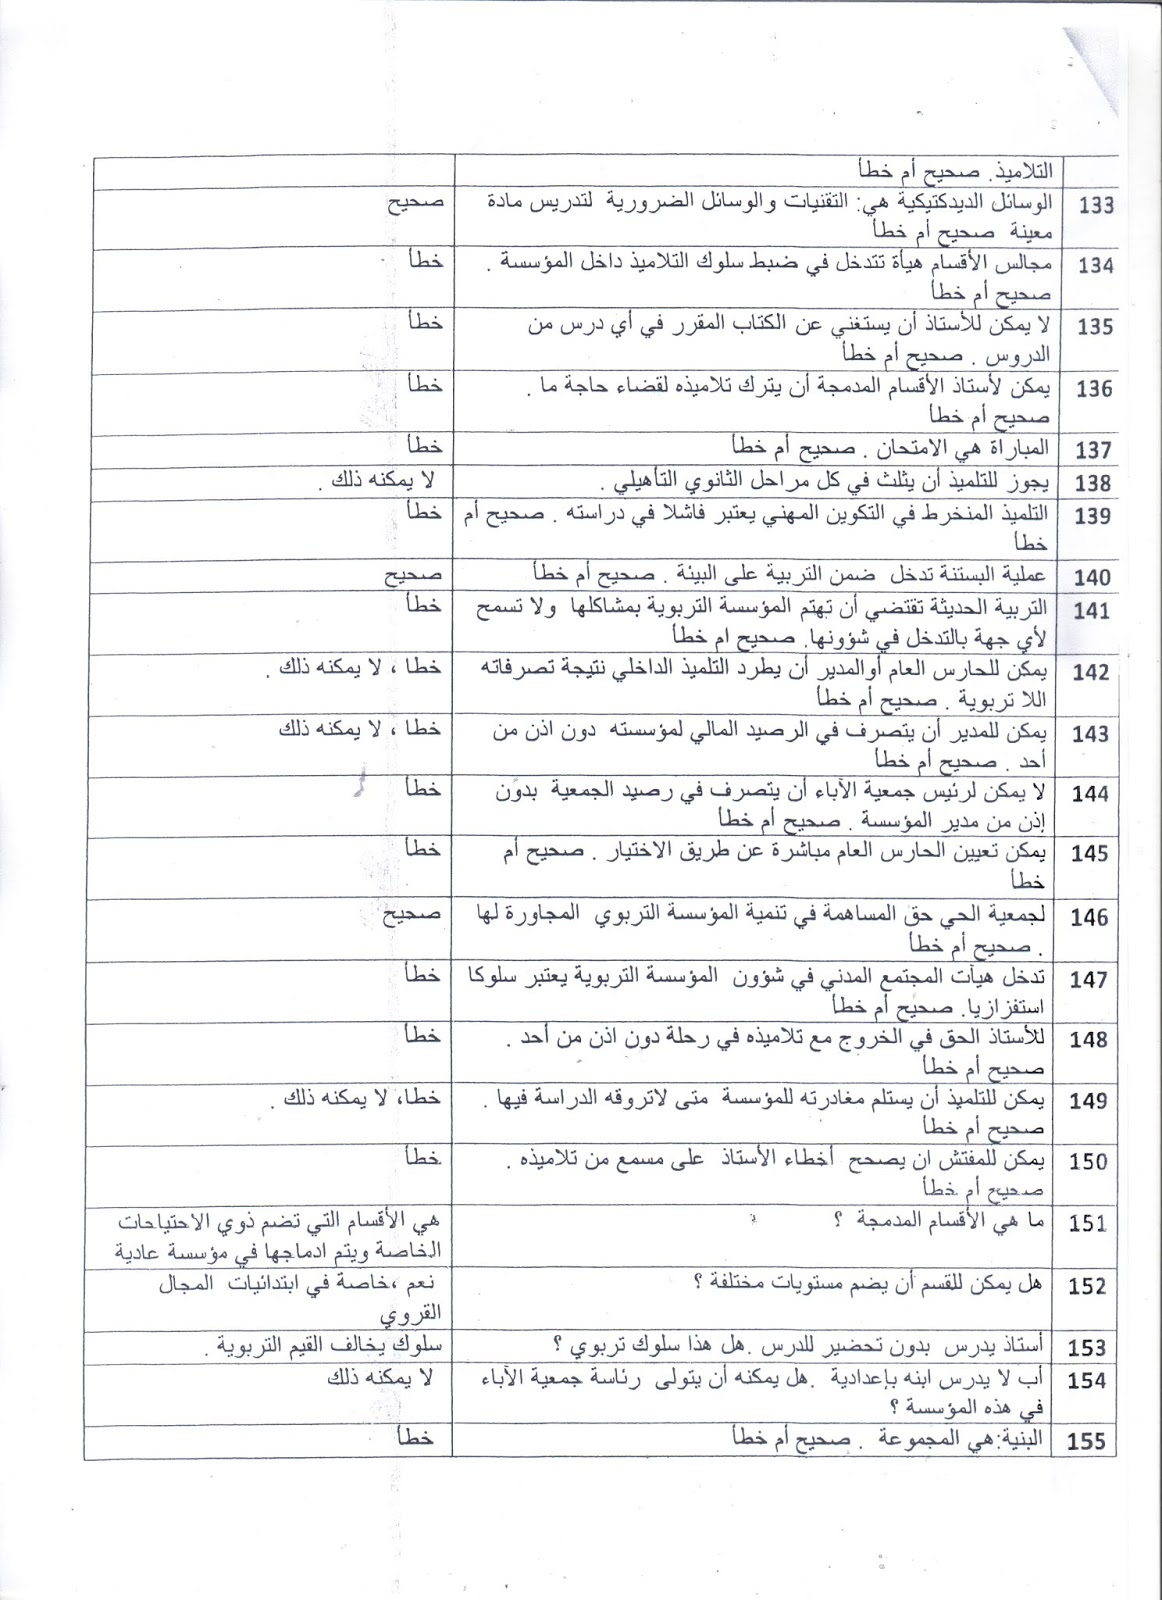 التلاميذ. صحيح أم خطأ
133 الوسائل الديدكتيكية هي: التقنيات والوسائل الضرورية لتدريس مادة صحيح
معينة صحيح أم خطأ
134 مجالس الأقسام هيأة تتدخل في ضبط سلوك التلاميذ داخل المؤسسة . خطأ
صحيح أم خطأ
135 لا يمكن للأستاذ أن يستغني عن الكتاب المقرر في أي درس من خطأ
الدروس . صحيح أم خطأ
136 يمكن لأستاذ الأقسام المدمجة أن يترك تلاميذه لقضاء حاجة ما . خطأ
صحيح أم خطأ
137 المباراة هي الامتحان . صحيح أم خطأ خطأ
138 يجوز للتلميذ أن يثلث في كل مراحل الثانوي التأهيلي . لا يمكنه ذلك .
139 التلميذ المنخرط في التكوين المهني يعتبر فاشلا في دراسته . صحيح أم خطأ
خطأ
140 عملية البستنة تدخل ضمن التربية على البيئة . صحيح أم خطأ صحيح
141 التربية الحديثة تقتضي أن تهتم المؤسسة التربوية بمشاكلها ولا تسمح خطأ
لأي جهة بالتدخل في شؤونها. صحيح ام خطأ
142 يمكن للحارس العام أوالمدير أن يطرد التلميذ الداخلي نتيجة تصرفاته خطا ، لا يمكنه ذلك .
اللا تربوية . صحيح أم خطأ
143 يمكن للمدير أن يتصرف في الرصيد المالي لمؤسسته دون اذن من خطا ، لا يمكنه ذلك
أحد . صحيح أم خطأ
144 لا يمكن لرئيس جمعية الآباء أن يتصرف في رصيد الجمعية بدون خطأ
إذن من مدير المؤسسة . صحيح أم خطأ
145 يمكن تعيين الحارس العام مباشرة عن طريق الاختيار . صحيح أم خطأ
خطأ
146 لجمعية الحي حق المساهمة في تنمية المؤسسة التربوي المجاورة لها صحيح
. صحيح أم خطأ
147 تدخل هيآت المجتمع المدني في شؤون المؤسسة التربوية يعتبر سلوكا خطأ
استفزازيا. صحيح أم خطأ
148 للأستاذ الحق في الخروج مع تلاميذه في رحلة دون اذن من أحد . خطأ
صحيح أم خطأ
149 يمكن للتلميذ أن يستلم مغادرته للمؤسسة متى لاتروقه الدراسة فيها . خطا، لا يمكنه ذلك .
صحيح أم خطأ
150 يمكن للمفتش ان يصحح أخطاء الأستاذ على مسمع من تلاميذه . خطأ
صحيح أم خطأ
151 ما هي الأقسام المدمجة ؟ هي الأقسام التي تضم ذوي الاحتياحات
الخاصة ويتم ادماجها في مؤسسة عادية
152 هل يمكن للقسم أن يضم مستويات مختلفة ؟ نعم ،خاصة في ابتدائيات المجال
القروي
153 أستاذ يدرس بدون تحضير للدرس .هل هذا سلوك تربوي ؟ سلوك يخالف القيم التربوية .
154 أب لا يدرس ابنه بإعدادية .هل يمكنه أن يتولى رئاسة جمعية الآباء لا يمكنه ذلك
في هذه المؤسسة ؟
155 البنية:هي المجموعة . صحيح أم خطأ خطأ